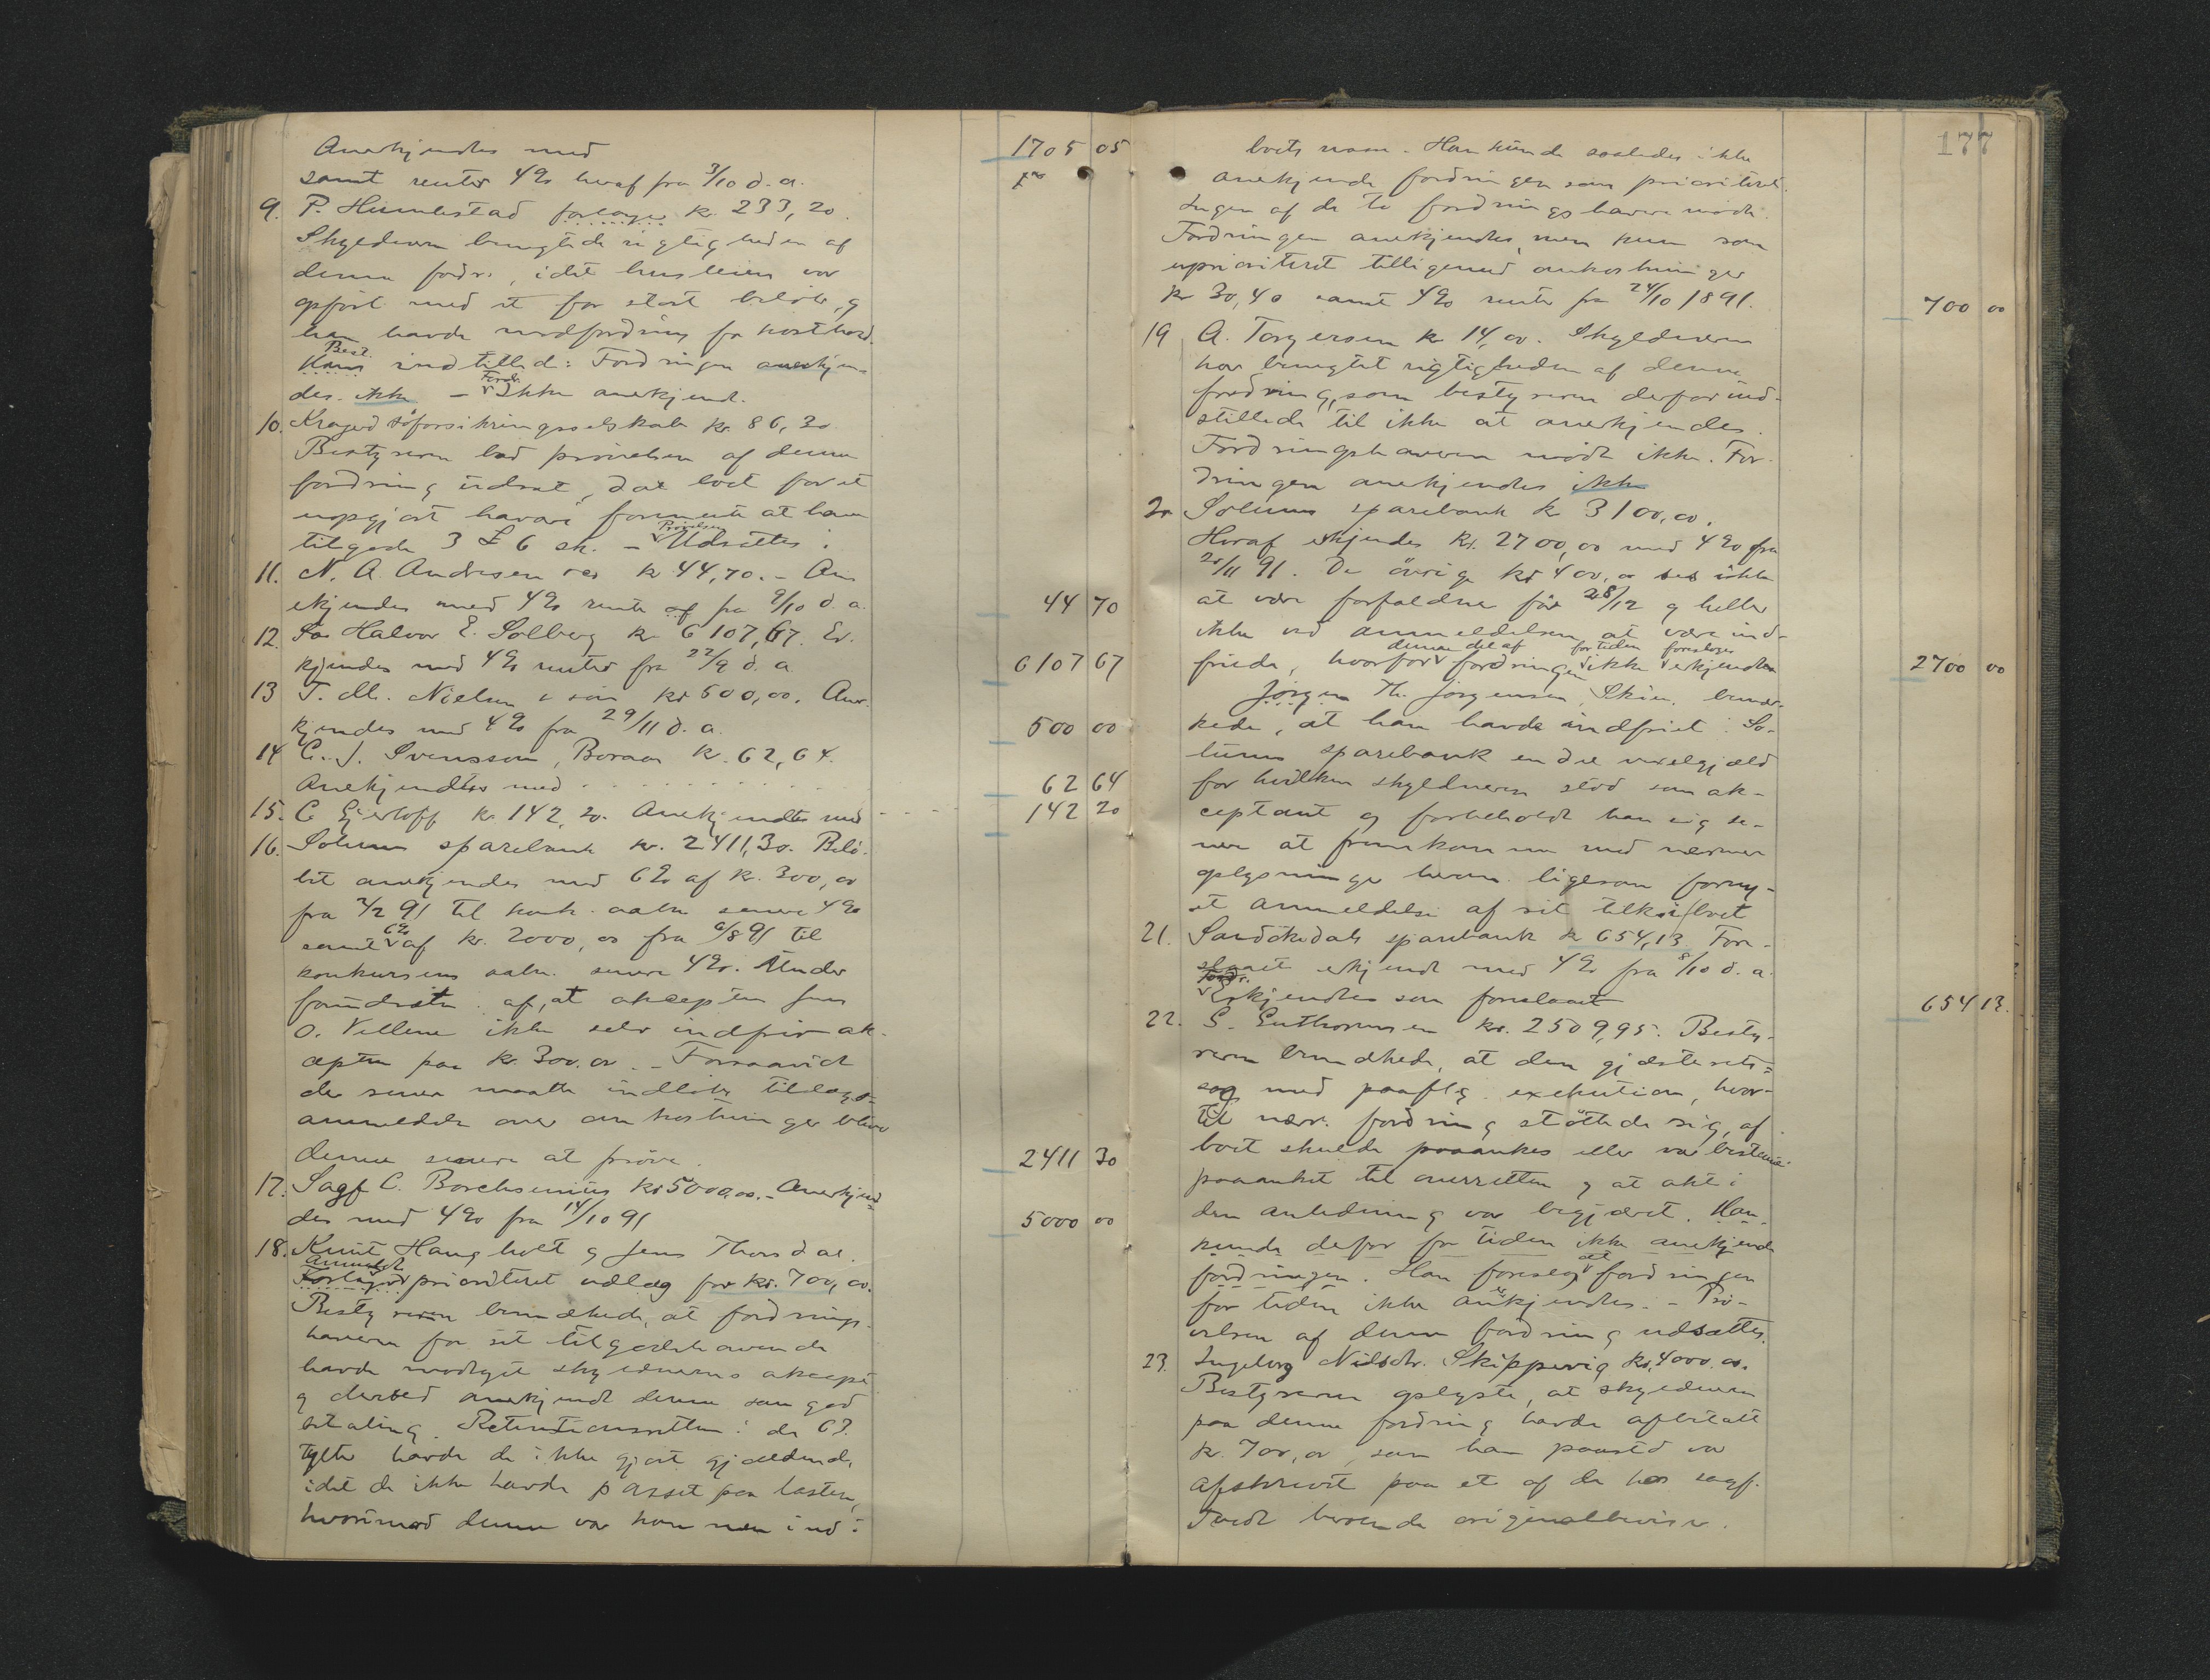 Anerkjendes med 1705 05
samt renter 4% heraf fra 3/10 d. a.
9. P. Humlestad forlanger kr. 233,20.
Skyldneren benegtede rigtigheden af
denne fordr., idet husleien var
opført med et for stort beløb, og
han havde modfordring for kosthold.
Best.
indstilled: Fordringen anerkjen-
des ikke – Fordr. Ikke anerkjendt.
10. Kragerø söforsikringsselskab kr. 86,30
Bestyreren lod prøvelsen af denne
fordring udsat, da boet for et
uopgjort havari formente at have
tilgode 3 £ 6 sh. – Prøvelsen Udsættes.
11. N. A. Andresen kr 44,70. – An-
erkjendes med 4% rente fra 9/10 d. a. 44 70
12. Halvor E. Solberg kr 6107,67. Er-
kjendes med 4% renter fra 22/9 d. a. 6107 67
13 T. M. Nielsen & søn kr 500,00. Aner-
kjendes med 4% fra 29/11 d. a. 500 00
14 C. J. Svensson, Boraas kr. 62,64.
Anerkjendtes med 62 64
15. C Gjerloff kr 142,20. Anerkjendtes med 142 20
16. Solums sparebank kr. 2411,30. Belö-
bet anerkjendes med 6% af kr. 300,00
fra 91 til konk. aabn. senere 4%
samt 6% af kr. 2000,00 fra 6/8 91 til
konkursens aabn. senere 4%. Under
forudsætn. af, at akcepten Jens
O. Vellene ikke selv indfrir ak-
cepten paa kr. 300.00. – Forsaavidt
der senere maatte indløbe tillægs-
anmeldelse over omkostninger bliver
denne senere at prøve. 2411 30
17. Sagf C. Borchsenius kr 5000,00. – Anerkjend-
des med 4% fra 14/10 91 5000 00
18. Knut Haugholt og Jens Thorsdal
anmeldt
prioriteret udlæg for kr. 700,00.
Bestyreren bemærkede, at fordrings-
haverne for sit tilgodehavende
havde modtaget skyldnerens akcept
og derved anerkjendt denne som god
betaling. Retentionsretten i de 63
tylter havde de ikke gjort gjældende,
idet de ikke havde passet paa lasten,
hvorimod denne var kommen ind i

177
boets masse. Han kunde saaledes ikke
anerkjende fordringen som prioriteret.
Ingen af de to fordringshavere mødte.
Fordringen anerkjendtes, men kun som
uprioriteret tilligemed omkostninger
kr 30,40 samt 4% rente fra 24/10 1891. 700 00
19 A. Torgersen kr 14,00. Skyldneren
har benegtet rigtigheden af denne
fordring, som bestyreren derfor ind-
stillede til ikke at anerkjendes.
Fordringshaveren mødte ikke. For-
dringen anerkjendtes ikke
20 Solums sparebank kr 3100,00.
Heraf erkjendes kr. 2700,00 med 4% fra
20/11 91. De övrige kr 400,00 sees ikke
at være forfaldne før 28/12 og heller
ikke ved anmeldelsen at være ind-
denne del af for tiden foreslaaes
friede, hvorfor fordringen ikke erkjendtes 2700 00
Jørgen Th. Jørgensen, Skien, bemær-
kede, at han havde indfriet i So-
lums sparebank en del vexelgjæld
for hvilken skyldneren stod som ak-
ceptant og forbeholdt han sig se-
nere at fremkomme med nærmere
oplysninger herom ligesom forny-
et anmeldelse af sit tilkommende
21. Sandökedals sparebank kr 654,13 Fore-
slaaet erkjendt med 4% fra 8/10 d. a.
Erkjendtes som foreslaaet 654 13.
22. S. Guthormsen kr. 2509,95. Besty-
reren bemærkede, at den gjesterets-
sag med paaflg. exekution, hvor-
til nærv. fordring støttede sig, af
boet skulde paaankes eller var bestemt
paaanket til overretten og at akt i
den anledning var begjæret. Han
kunde derfor for tiden ikke anerkjende
fordringen. Han foreslog at fordringen
for tiden ikke anerkjendtes. – Prø-
velsen af denne fordring udsættes.
23. Ingeborg Nilsdtr. Skippervig kr. 4000.00.
Bestyreren oplyste, at skyldneren
paa denne fordring havde afbetalt
kr. 700,00, som han paastod var
afskrevet paa et af de hos sagf.
Tvedt beroende originalbeviser.